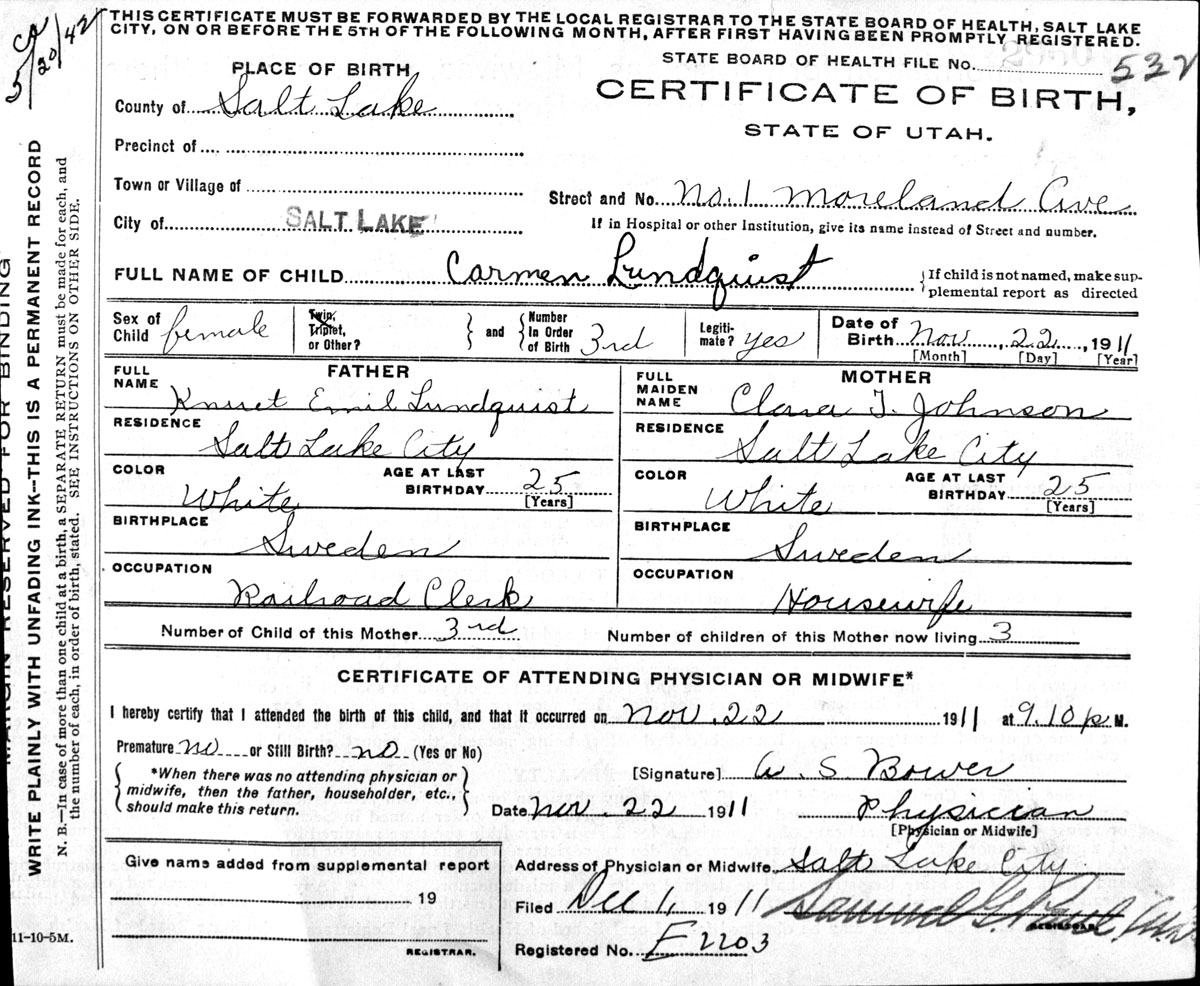 THIS CERTIFICATE MUST BE FORWARDED BY THE LOCAL REGISTRAR TO THE STATE BOARD OF HEALTH, SALT LAKE
CITY, ON OR BEFORE THE 5TH OF THE FOLLOWING MONTH, AFTER FIRST HAVING BEEN PROMPTLY REGISTERED.
5/20/42
STATE BOARD OF HEALTH FILE No. 532
PLACE OF BIRTH
CERTIFICATE OF BIRTH,
STATE OF UTAH.
County of Salt Lake
Precinct of
Town or Village of
Street and No. No. 1 Moreland Ave
City of SALT LAKE
If in Hospital or other Institution, give its name instead of Street and number.
FULL NAME OF CHILD Carmen Lundquist
{If child is not named, make sup-
plemental report as directed
Sex of Child female
Twin, Triplet, or Other? } and { Number In Order of Birth 3rd
Legiti-mate? yes
Date of Birth Nov, 22, 1911
[Month] [Day] [Year]
FATHER
FULL NAME Knut Emil Lundquist
RESIDENCE
Salt Lake City
COLOR White
AGE AT LAST BIRTHDAY 25 [Years]
BIRTHPLACE
Sweden
OCCUPATION
Railroad Clerk
MOTHER
FULL MAIDEN NAME Clara T. Johnson
RESIDENCE
Salt Lake City
COLOR White
AGE AT LAST BIRTHDAY 25 [Years]
BIRTHPLACE
Sweden
OCCUPATION
Housewife
Number of Child of this Mother 3rd Number of children of this Mother now living 3
CERTIFICATE OF ATTENDING PHYSICIAN OR MIDWIFE*
I hereby certify that I attended the birth of this child, and that it occurred on Nov. 22 1911 at 9.10 p M.
Premature no or Still Birth? no (Yes or No)
{ *When there was no attending physician or
midwife, then the father, householder, etc.,
should make this return. }
[Signature] S. Bower
Date Nov. 22 1911 Physician
[Physician or Midwife]
Give name added from supplemental report
19
REGISTRAR.
Address of Physician or Midwife Salt Lake City
Filed Dec 1, 1911 Samuel G.
REGISTRAR.
Registered No. E2203
MARGIN RESERVED FOR BINDING
WRITE PLAINLY WITH UNFADING INK—THIS IS A PERMANENT RECORD
N. B.—In case of more than one child at a birth, a SEPARATE RETURN must be made for each, and
the number of each, in order of birth, stated. SEE INSTRUCTIONS ON OTHER SIDE.
11-10-5M.